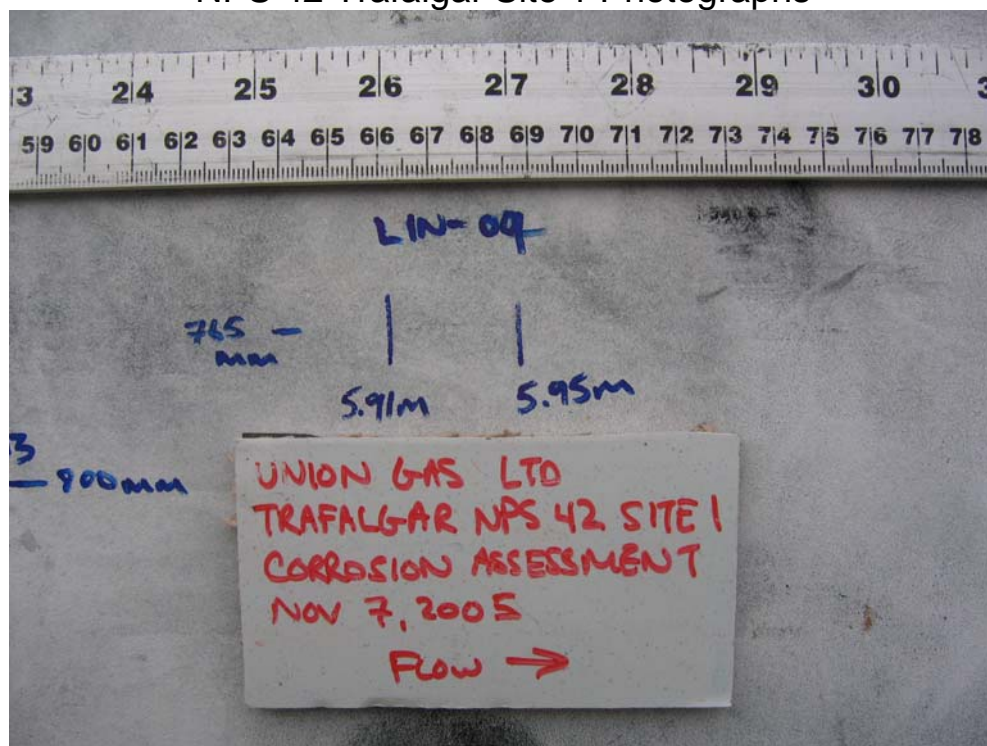 NPS 42 Trafalgar Site 1 Photographs
3 24 25 26 27 28 29 30 3
59 60 61 62 63 64 65 66 67 68 69 70 71 72 73 74 75 76 77 78
LIN-04
765
mm
5.91m 5.95m
3
800mm
UNION GAS LTD
TRAFALGAR NPS 42 SITE 1
CORROSION ASSESSMENT
NOV 7, 2005
FLOW →